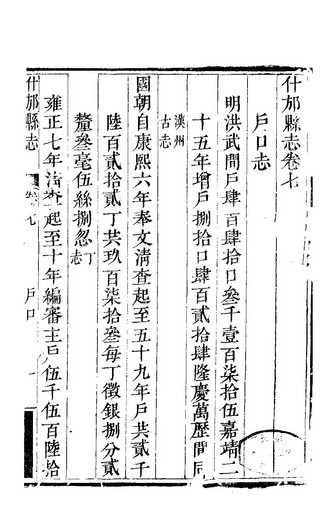 什邡縣志卷七
戶口志
明洪武間戶肆百肆拾口叁千壹百柒拾伍嘉靖二
十五年增戶捌拾口肆百貳拾肆隆慶萬歷間同
漢州
古志
國朝自康熙六年奉文清查起至五十九年戶共貳千
陸百貳拾貳丁共玖百柒拾叁每丁徵銀捌分貳
釐叁毫伍絲捌忽丁
志
雍正七年清查起至十年編審主戶伍千伍百陸拾
什邡縣志 卷七 戶口 一